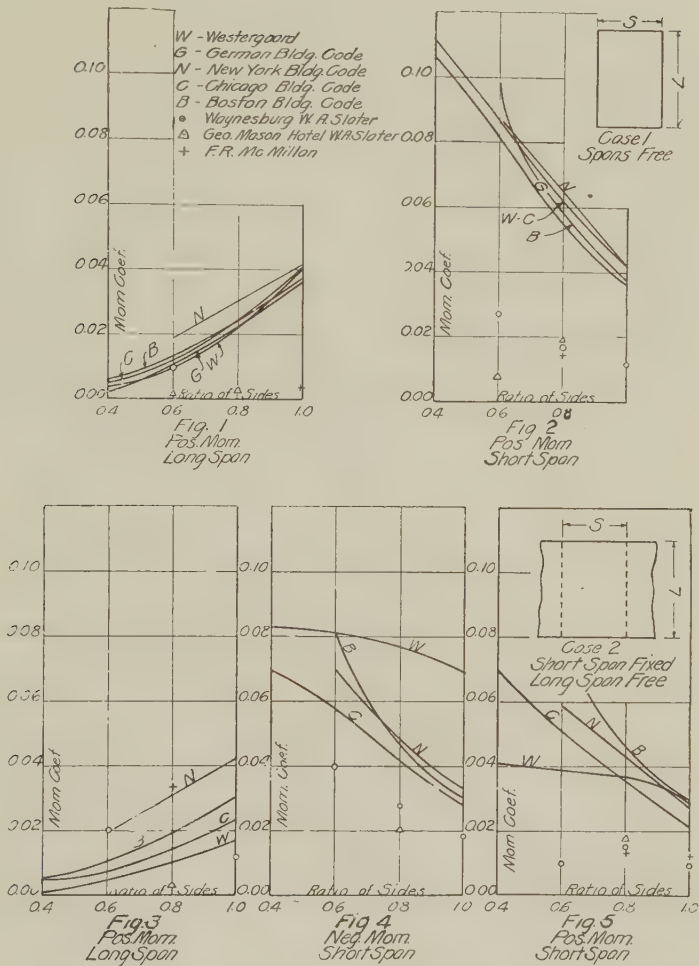 W - Westergaard
G - German Bldg. Code
N - New York Bldg. Code
C - Chicago Bldg. Code
B - Boston Bldg. Code
Waynesburg W.A. Slater
Geo. Mason Hotel W.A. Slater
F.R. Mc Millan
0.10
0.08
0.06
0.04
0.02
0.00
Mom Coef.
N
C
B
G
W
Ratio of Sides
0.4
0.6
0.8
1.0
Fig. 1
Pos. Mom.
Long Span
0.10
0.08
0.06
0.04
0.02
0.00
Mom. Coef.
G
N
W-C
B
Ratio of Sides
0.4
0.6
0.8
1.0
Fig 2
Pos Mom
Short Span
S
L
Case 1
Spans Free
0.10
0.08
0.06
0.04
0.02
0.00
Mom Coef
N
B
C
W
Ratio of Sides
0.4
0.6
0.8
1.0
Fig. 3
Pos. Mom.
Long Span
0.10
0.08
0.06
0.04
0.02
0.00
Mom. Coef.
B
W
C
N
Ratio of Sides
0.4
0.6
0.8
1.0
Fig 4
Neg. Mom.
Short Span
0.10
0.08
0.06
0.04
0.02
0.00
Mom Coef
S
L
Case 2
Short Span Fixed
Long Span Free
C
N
B
W
Ratio of Sides
0.4
0.6
0.8
1.0
Fig. 5
Pos. Mom.
Short Span